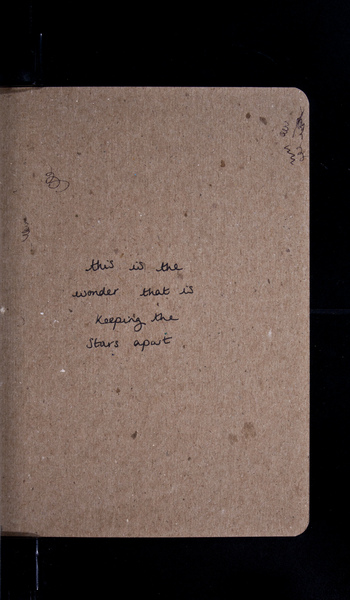 this is the
wonder that is
keeping the
stars apart